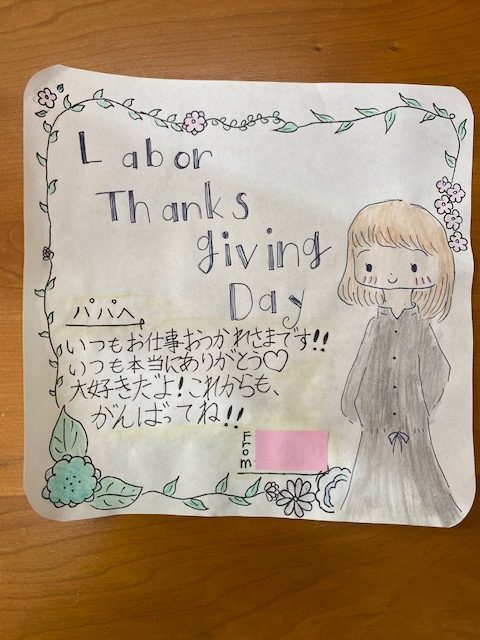 Labor
Thanks
giving
Day
パパへ
いつもお仕事おつかれさまです!!
いつも本当にありがとう♡
大好きだよ!これからも、
がんばってね!!
From